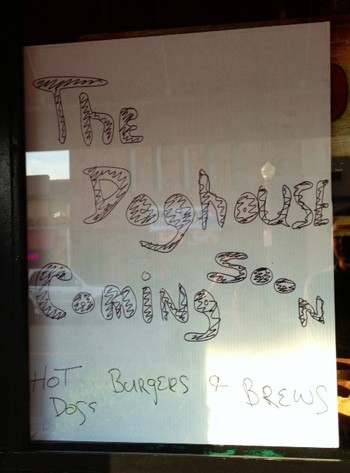 The
Doghouse
Coming Soon
HOT BURGERS & BREWS
DOGS